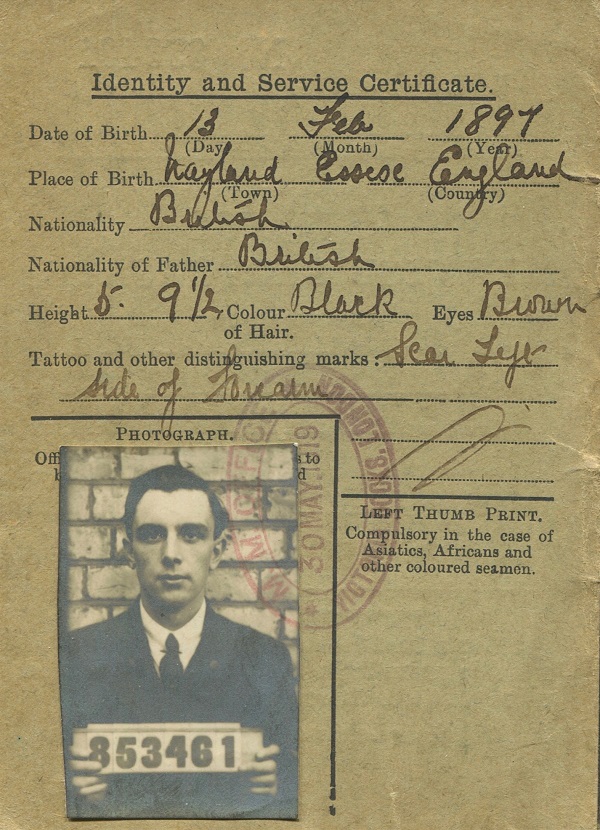 Identity and Service Certificate.
Date of Birth 13 Feb 1897
(Day) (Month) (Year)
Place of Birth Essex England
(Town) (Country)
Nationality British
Nationality of Father British
Height 5. 9 1/2 Colour of Hair. Black Eyes Brown
Tattoo and other distinguishing marks: Scar Left
side of Forearm
PHOTOGRAPH.
LEFT THUMB PRINT.
Compulsory in the case of
Asiatics, Africans and
other coloured seamen.
30 MAY. 19
853461